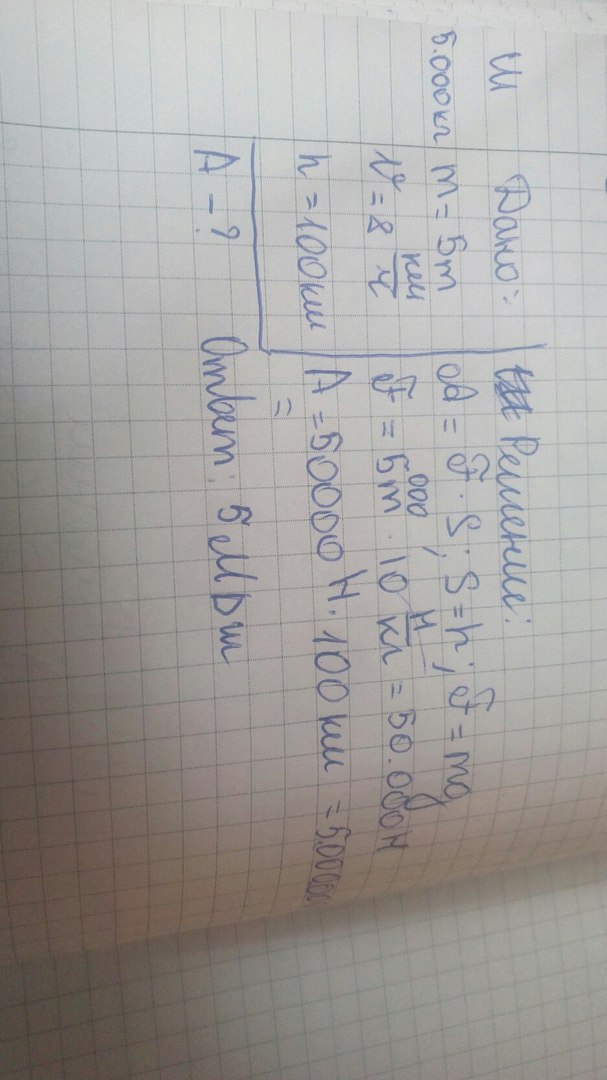 Ш
Дано:
5.000кг m = 5т
V = 8 км/ч
h = 100км
A - ?
Решение:
A = F · S; S = h; F = mg
F = 5000т · 10 Н/кг = 50.000Н
A = 50000 Н · 100 км =
=
Ответ: 5 МДж